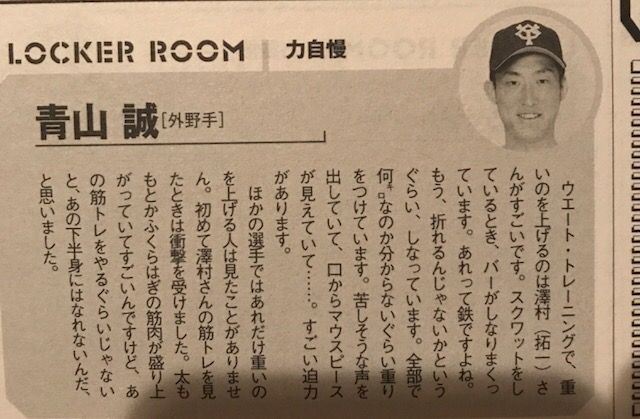 LOCKER ROOM
力自慢
青山 誠[外野手]
ウエート・トレーニングで、重
いのを上げるのは澤村(拓一)さ
んがすごいです。スクワットをし
ているとき、バーがしなりまくっ
ています。あれって鉄ですよね。
もう、折れるんじゃないかという
ぐらい、しなっています。全部で
何㌔なのか分からないぐらい重り
をつけています。苦しそうな声を
出していて、口からマウスピース
が見えていて……。すごい迫力
があります。
ほかの選手ではあれだけ重いの
を上げる人は見たことがありませ
ん。初めて澤村さんの筋トレを見
たときは衝撃を受けました。太も
もとかふくらはぎの筋肉が盛り上
がっていてすごいんですけど、あ
の筋トレをやるぐらいじゃない
と、あの下半身にはなれないんだ、
と思いました。